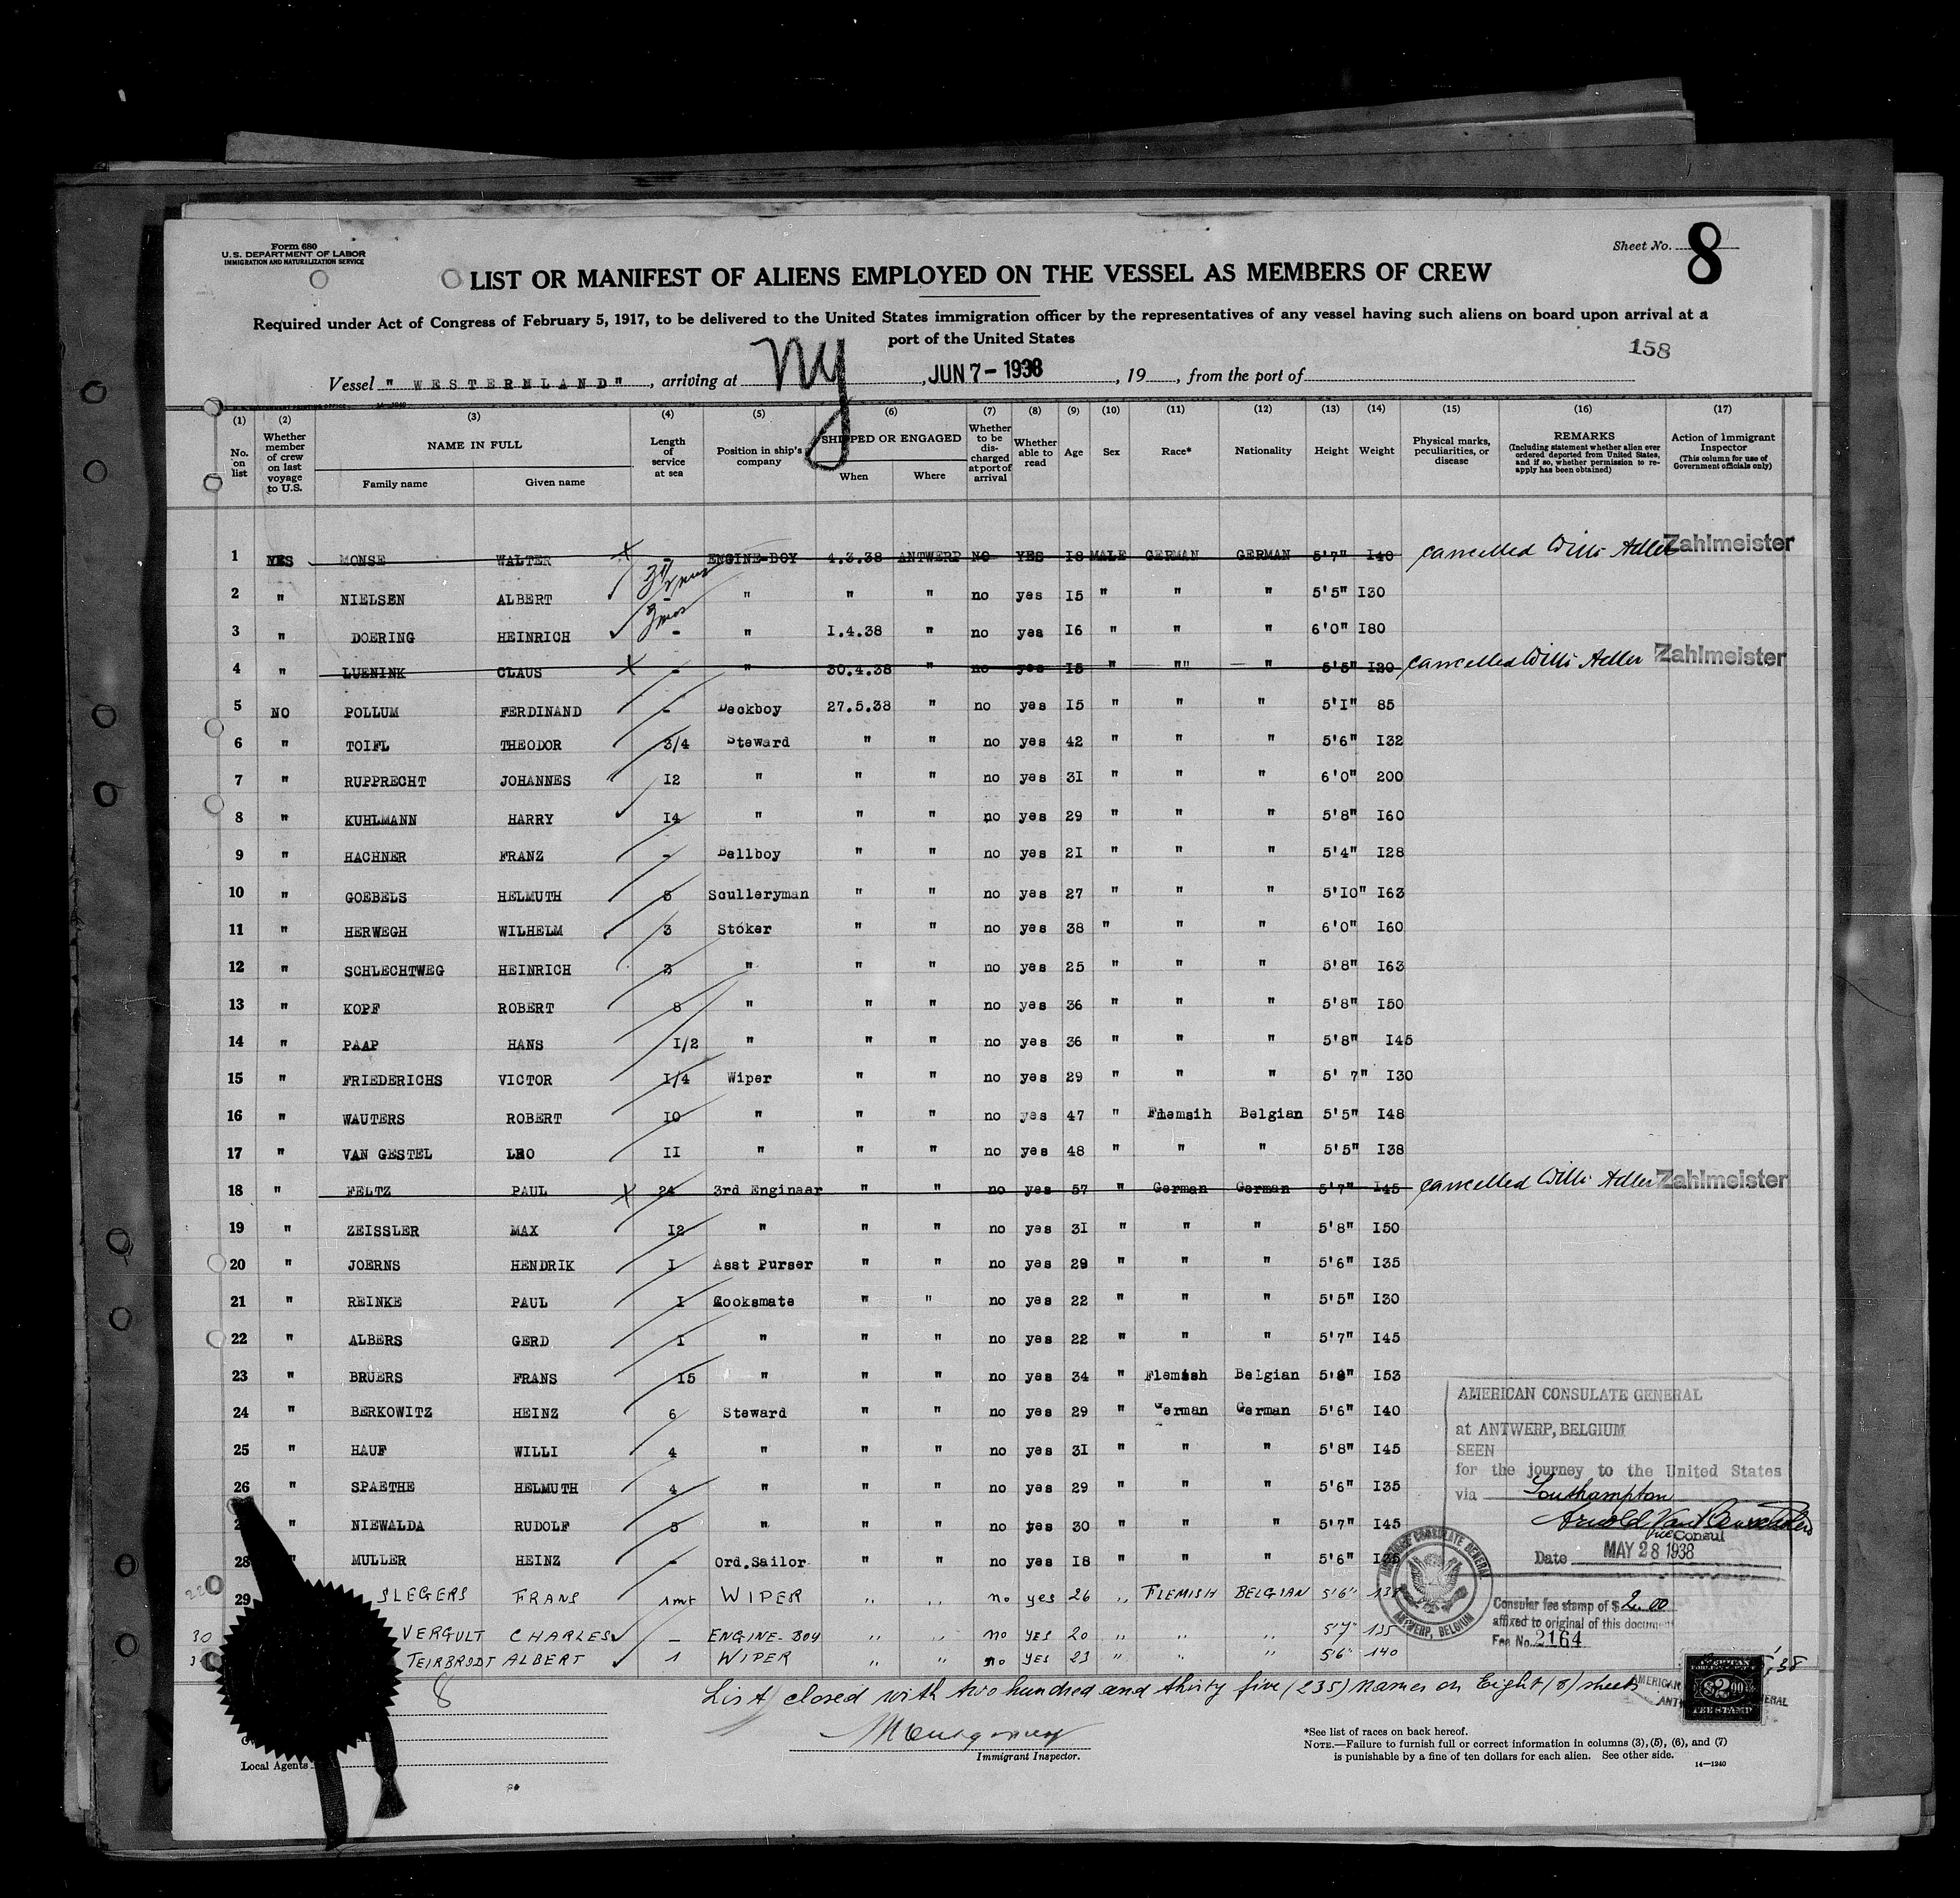 Form 680
U.S. DEPARTMENT OF LABOR
IMMIGRATION AND NATURALIZATION SERVICE
Sheet No. 8
LIST OR MANIFEST OF ALIENS EMPLOYED ON THE VESSEL AS MEMBERS OF CREW
Required under Act of Congress of February 5, 1917, to be delivered to the United States immigration officer by the representatives of any vessel having such aliens on board upon arrival at a
port of the United States
158
Vessel " WESTERNLAND" , arriving at NY , JUN 7 - 1938 , 19 , from the port of
(1) (2) (3) (4) (5) (6) (7) (8) (9) (10) (11) (12) (13) (14) (15) (16) (17)
No. on list Whether member of crew on last voyage to U.S. NAME IN FULL Family name Given name Length of service at sea Position in ship's company SHIPPED OR ENGAGED When Where Whether to be discharged at port of arrival Whether able to read Age Sex Race* Nationality Height Weight Physical marks, peculiarities, or disease REMARKS (Including statement whether alien ever ordered deported from United States, and if so, whether permission to reapply has been obtained) Action of Immigrant Inspector (This column for use of Government officials only)
1 YES MONSE WALTER - ENGINE-BOY 4.3.38 ANTWERP NO YES I8 MALE GERMAN GERMAN 5'7" I40 cancelled Willi Adler Zahlmeister
2 " NIELSEN ALBERT - " " " no yes I5 " " " 5'5" I30
3 " DOERING HEINRICH 3mos - " I.4.38 " no yes I6 " " " 6'0" I80
4 " LUENINK CLAUS - " 30.4.38 " no yes I5 " "" " 5'5" I20 cancelled Willi Adler Zahlmeister
5 NO POLLUM FERDINAND - Deckboy 27.5.38 " no yes I5 " " " 5'I" 85
6 " TOIFL THEODOR 3/4 Steward " " no yes 42 " " " 5'6" I32
7 " RUPPRECHT JOHANNES I2 " " " no yes 3I " " " 6'0" 200
8 " KUHLMANN HARRY I4 " " " no yes 29 " " " 5'8" I60
9 " HACHNER FRANZ - Bellboy " " no yes 2I " " " 5'4" I28
10 " GOEBELS HELMUTH 5 Sculleryman " " no yes 27 " " " 5'I0" I63
11 " HERWEGH WILHELM 3 Stoker " " no yes 38 " " " 6'0" I60
12 " SCHLECHTWEG HEINRICH 3 " " " no yes 25 " " " 5'8" I63
13 " KOPF ROBERT 8 " " " no yes 36 " " " 5'8" I50
14 " PAAP HANS I/2 " " " no yes 36 " " " 5'8" I45
15 " FRIEDERICHS VICTOR I/4 Wiper " " no yes 29 " " " 5' 7" I30
16 " WAUTERS ROBERT I0 " " " no yes 47 " Flemsih Belgian 5'5" I48
17 " VAN GESTEL LEO II " " " no yes 48 " " " 5'5" I38
18 " FELTZ PAUL 24 3rd Engineer " " no yes 57 " German German 5'7" I45 cancelled Willi Adler Zahlmeister
19 " ZEISSLER MAX I2 " " " no yes 3I " " " 5'8" I50
20 " JOERNS HENDRIK I Asst Purser " " no yes 29 " " " 5'6" I35
21 " REINKE PAUL I Cooksmate " " no yes 22 " " " 5'5" I30
22 " ALBERS GERD I " " " no yes 22 " " " 5'7" I45
23 " BRUERS FRANS I5 " " " no yes 34 " Flemish Belgian 5'8" I53
24 " BERKOWITZ HEINZ 6 Steward " " no yes 29 " German German 5'6" I40
25 " HAUF WILLI 4 " " " no yes 3I " " " 5'8" I45
26 " SPAETHE HELMUTH 4 " " " no yes 29 " " " 5'6" I35
" NIEWALDA RUDOLF 5 " " " no yes 30 " " " 5'7" I45
28 " MULLER HEINZ - Ord.Sailor " " no yes I8 " " " 5'6" I35
29 SLEGERS FRANS 1mt WIPER " " no yes 26 " FLEMISH BELGIAN 5'6" 138
30 VERGULT CHARLES - ENGINE-BOY " " no YES 20 " " " 5'7" 135
TEIRBRODT ALBERT 1 WIPER " " no YES 23 " " " 5'6" 140
AMERICAN CONSULATE GENERAL
at ANTWERP, BELGIUM
SEEN
for the journey to the United States
via Southampton
Vice Consul
Date MAY 28 1938
AMERICAN CONSULATE GENERAL
ANTWERP, BELGIUM
Consular fee stamp of $ 2.00
affixed to original of this document
Fee No. 2164
8
List closed with two hundred and thirty five (235) names on Eight (8) sheets
AMERICAN
$2.00
FEE STAMP
Montgomery
Immigrant Inspector.
Local Agents
*See list of races on back hereof.
NOTE.—Failure to furnish full or correct information in columns (3), (5), (6), and (7)
is punishable by a fine of ten dollars for each alien. See other side.
14—1240